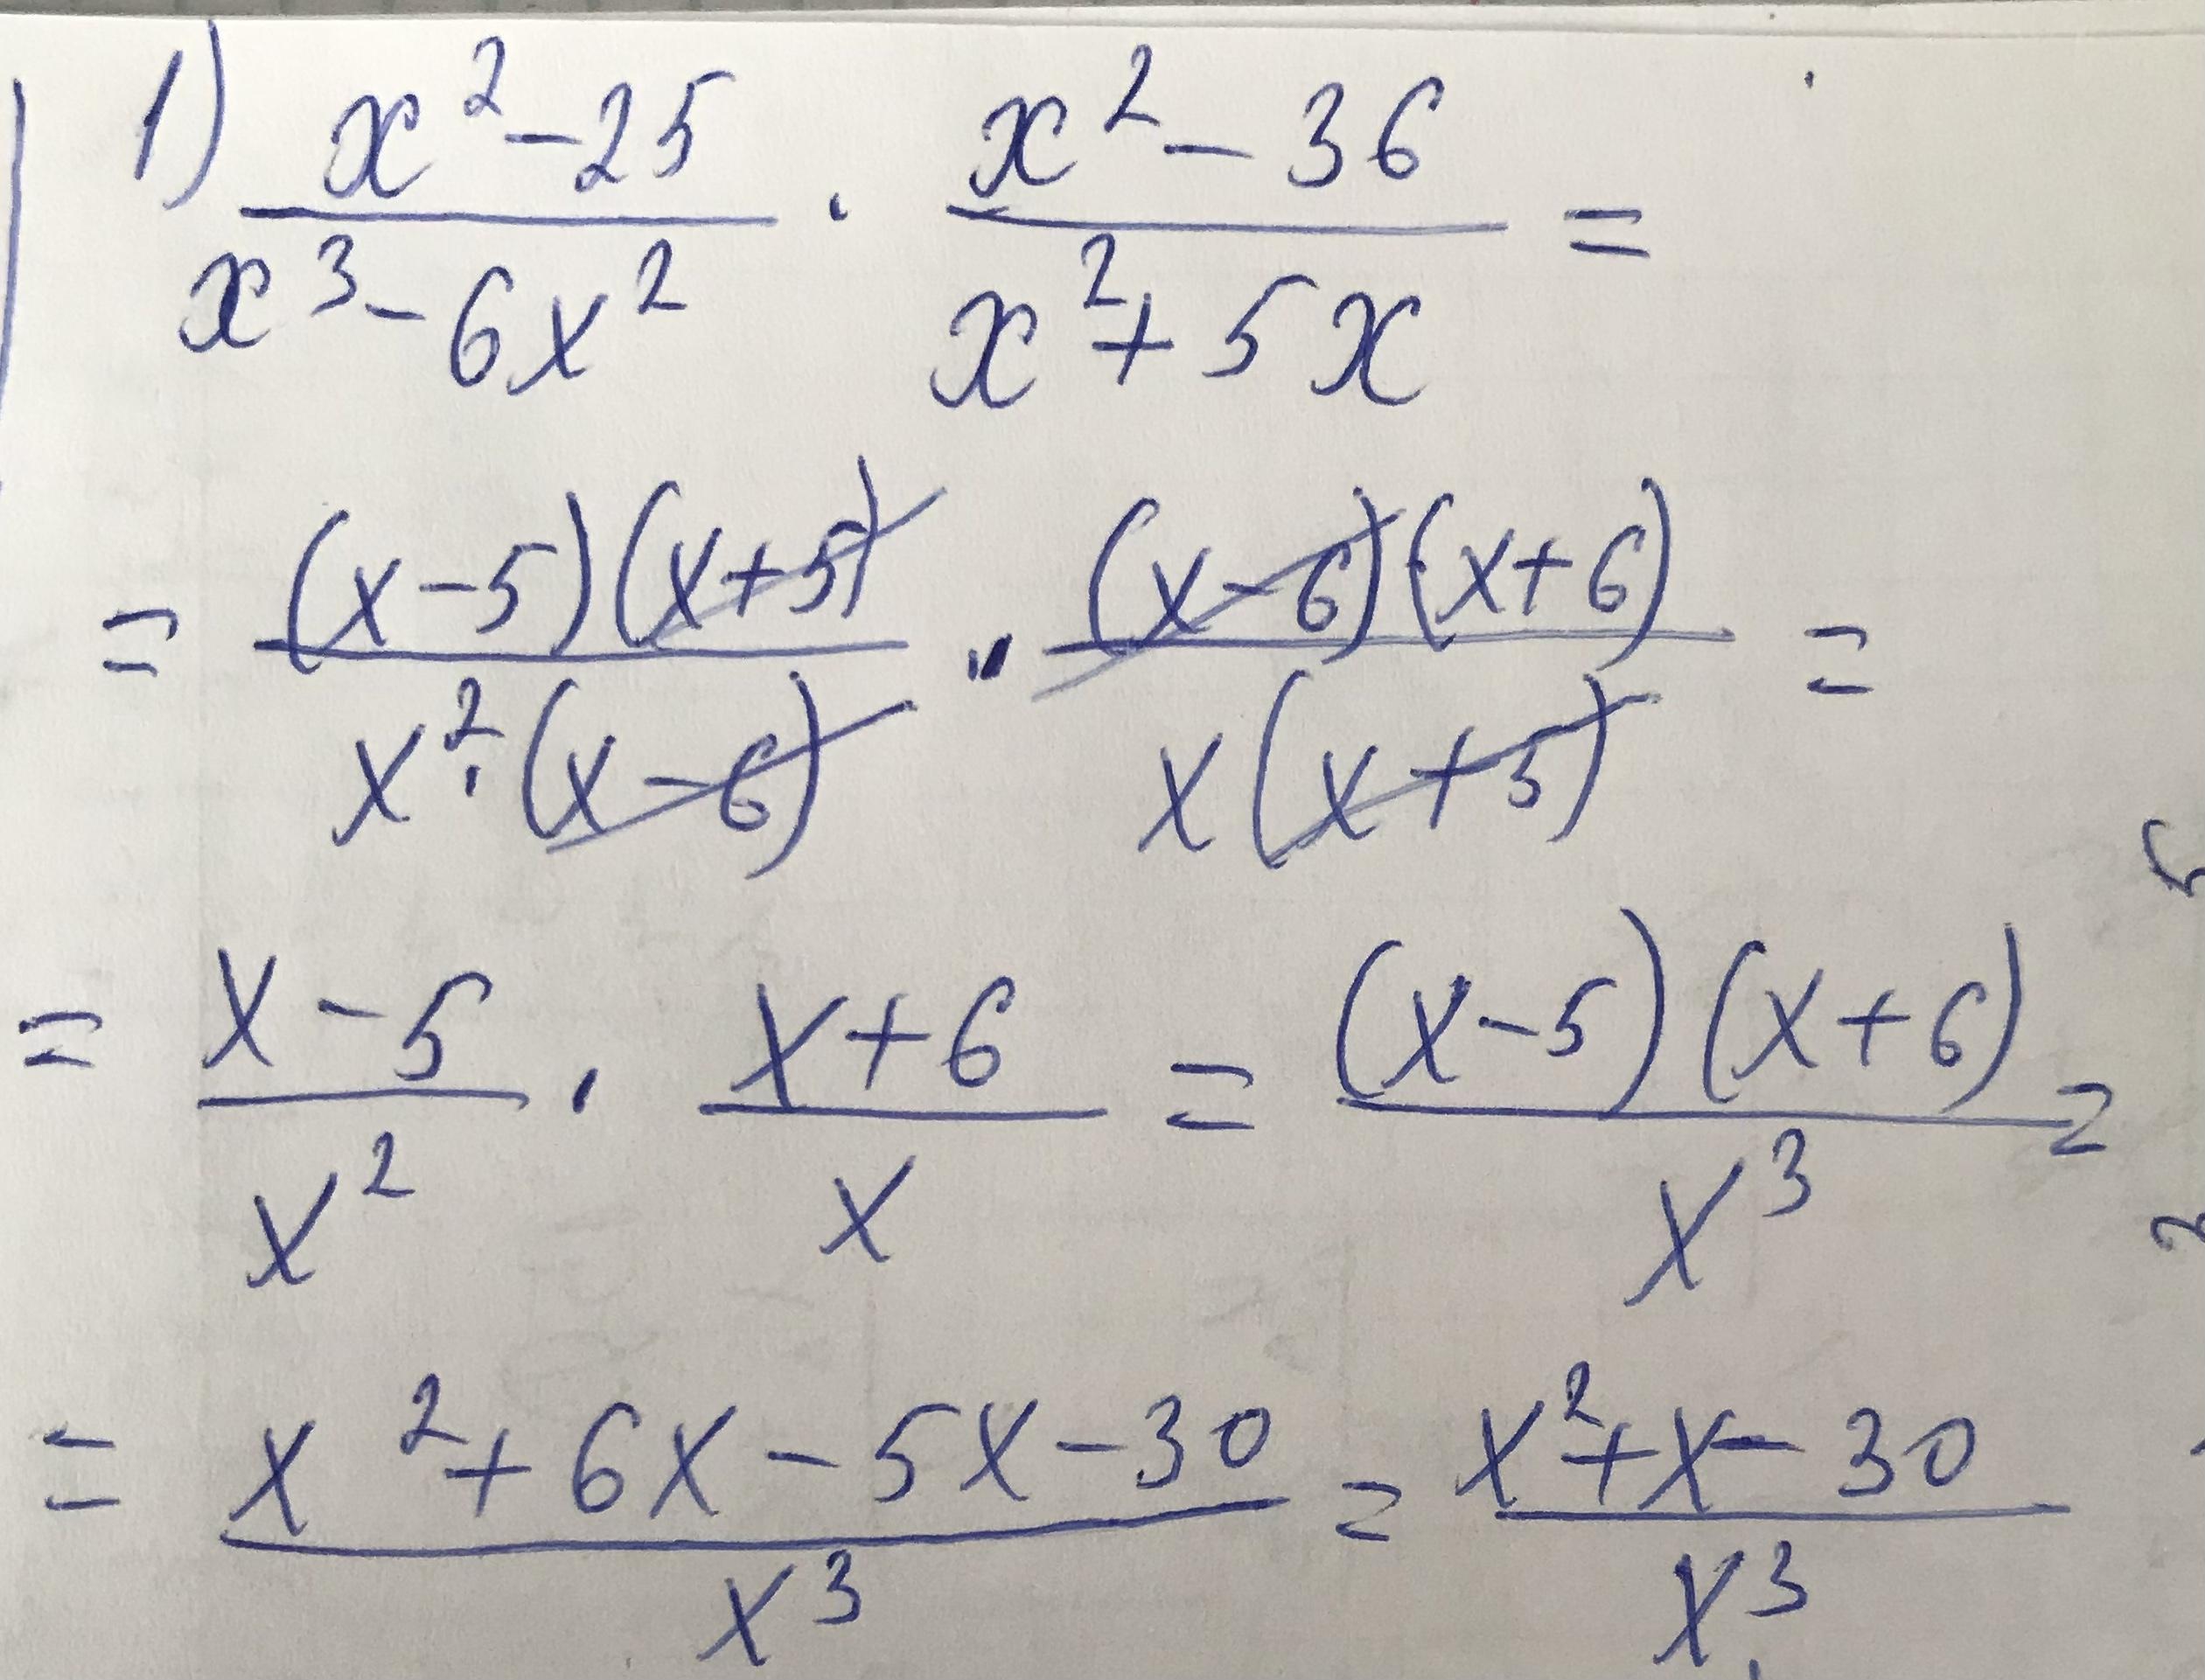 1) \frac{x^2-25}{x^3-6x^2} \cdot \frac{x^2-36}{x^2+5x} =
= \frac{(x-5)(x+5)}{x^2 \cdot (x-6)} \cdot \frac{(x-6)(x+6)}{x(x+5)} =
= \frac{x-5}{x^2} \cdot \frac{x+6}{x} = \frac{(x-5)(x+6)}{x^3} =
= \frac{x^2+6x-5x-30}{x^3} = \frac{x^2+x-30}{x^3}